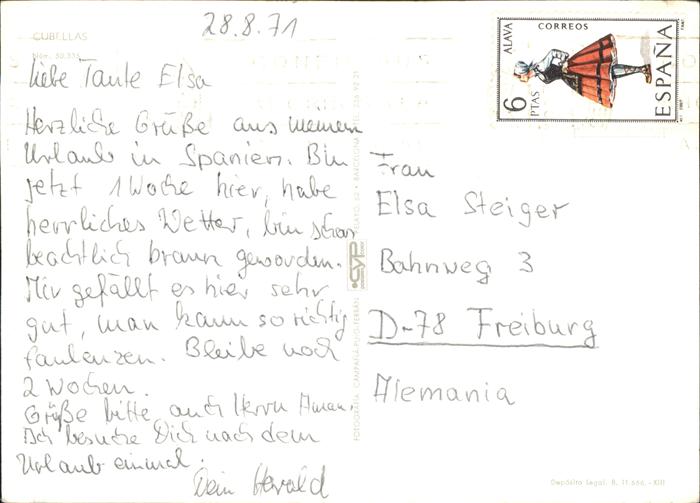 28.8.71
CUBELLAS
Liebe Tante Elsa
Herzliche Grüße aus meinem
Urlaub in Spanien. Bin
jetzt 1 Woche hier, habe
herrliches Wetter, bin schon
beachtlich braun geworden.
Mir gefällt es hier sehr
gut, man kann so richtig
faulenzen. Bleibe noch
2 Wochen.
Grüße bitte auch Herrn Aman.
Ich besuche Dich nach dem
Urlaub einmal.
Dein Herald
FOTOGRAFIA CAMPAÑA PUIG-FERRAN
CYP
BARCELONA
ALAVA
CORREOS
6 PTAS
ESPAÑA
Frau
Elsa Steiger
Bahnweg 3
D-78 Freiburg
Alemania
Depósito Legal. B. 11 666. - XIII